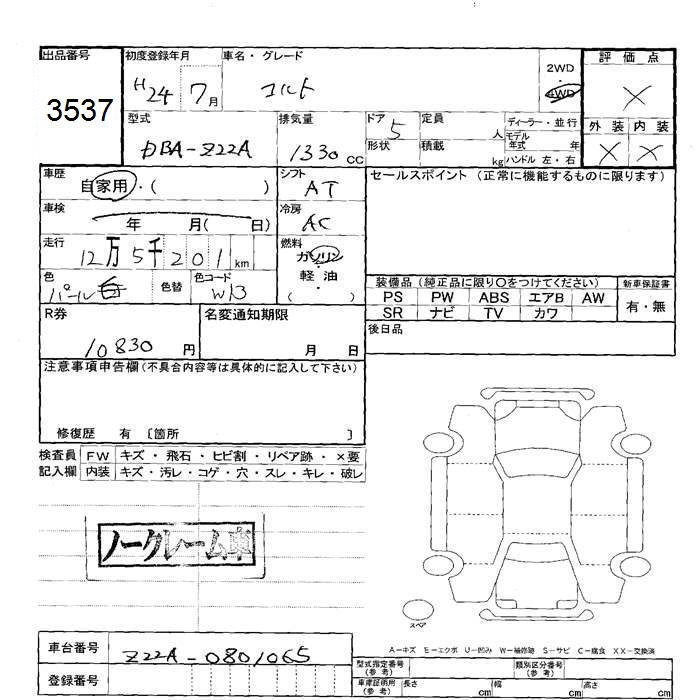 出品番号
3537
初度登録年月
H24 7月
車名・グレード
コルト
2WD
・
4WD
評価点
×
外装 内装
× ×
型式
DBA-Z22A
排気量
1330 CC
ドア
5
形状
定員
人
積載
kg
ディーラー・並行
モデル年式 年
ハンドル 左・右
車歴
自家用・( )
シフト
AT
セールスポイント (正常に機能するものに限ります)
車検
年 月( 日)
冷房
AC
走行
12万5千201km
燃料
ガソリン
・
軽・油
・
( )
色
パール白
色替
色コード
W13
装備品 (純正品に限り〇をつけてください)
新車保証書
PS PW ABS エアB AW
有・無
SR ナビ TV カワ
R券
10830円
名変通知期限
月 日
後日品
注意事項申告欄(不具合内容等は具体的に記入して下さい)
修復歴 有 〔箇所 〕
検査員記入欄
FW キズ・飛石・ヒビ割・リペア跡・×要
内装 キズ・汚レ・コゲ・穴・スレ・キレ・破レ
ノークレーム車
スペア
A-キズ E-エクボ U-凹み W-補修跡 S-サビ C-腐食 XX-交換済
車台番号
Z22A-0801065
登録番号
型式指定番号(参考)
類別区分番号(参考)
車庫証明用(参考)
長さ cm
幅 cm
高さ cm